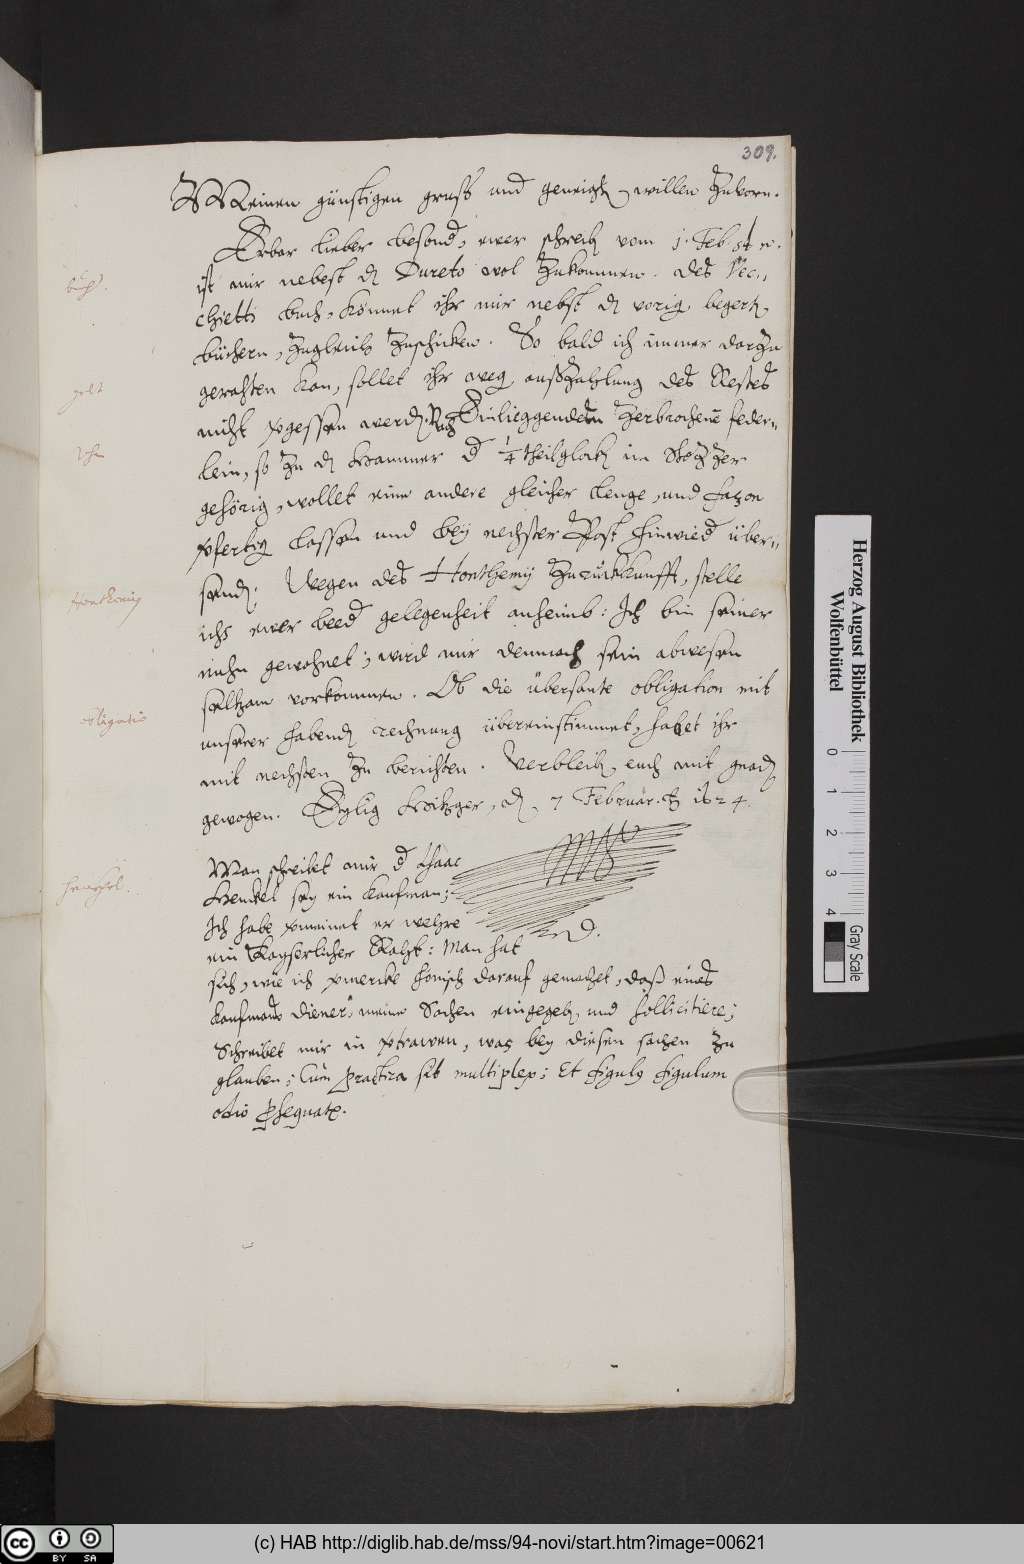 309.
Meinen günstigen gruß und geneigten willen zuvorn.
Erbar lieber besonder, ewer schreiben vom 1. Feb st. n.
ist mir nebest dem Dureto wol zukommen. Des Vec„
chietti buch, könnet ihr mir nebst den vorig begerten
büchern, zugleich zuschicken. So bald ich immer darzu
gerahten kan, sollet ihr weg. außzahlung des Restes
nicht vergessen werden. Einliegendem zerbrochene feder„
lein, so zu dem Hammer der 1/4 theilglocken im
gehörig, wollet eine andere gleicher lenge, und façon
verfertig lassen und bey nechster Post hinwieder über„
senden. Wegen des Honthemij zurückkunfft, stelle
ichs ewer beeder gelegenheit anheimb: Ich bin seiner
nuhn gewohnet; wird mir dennoch sein abwesen
seltzam vorkommen. Ob die übersante obligation mit
unserer habenden rechnung übereinstimmet, habet ihr
mit nechsten zu berichten. Verbleib euch mit gnaden
gewogen. Hitzger, den 7 Februar. 1624.
Man schreibet mir der Isaac
Henckel sey ein Kaufman;
Ich habe vermeinet er wehre
ein Kayserlicher Raht: Man hat
sich, wie ich vermercke hönisch darauf gemachet, daß eines
kaufmans diener, meine Sachen eingegeben, und sollicitire;
Schreibet mir in vertrawen, was bey diesen sachen zu
glauben; Cum practica sit multiplex; Et figulus figulum
odio persequatur.
büch.
gelt
Honthemij
obligatio
henckel.
Herzog August Bibliothek
Wolfenbüttel
0 1 2 3 4
Gray Scale
cc BY SA
(c) HAB http://diglib.hab.de/mss/94-novi/start.htm?image=00621